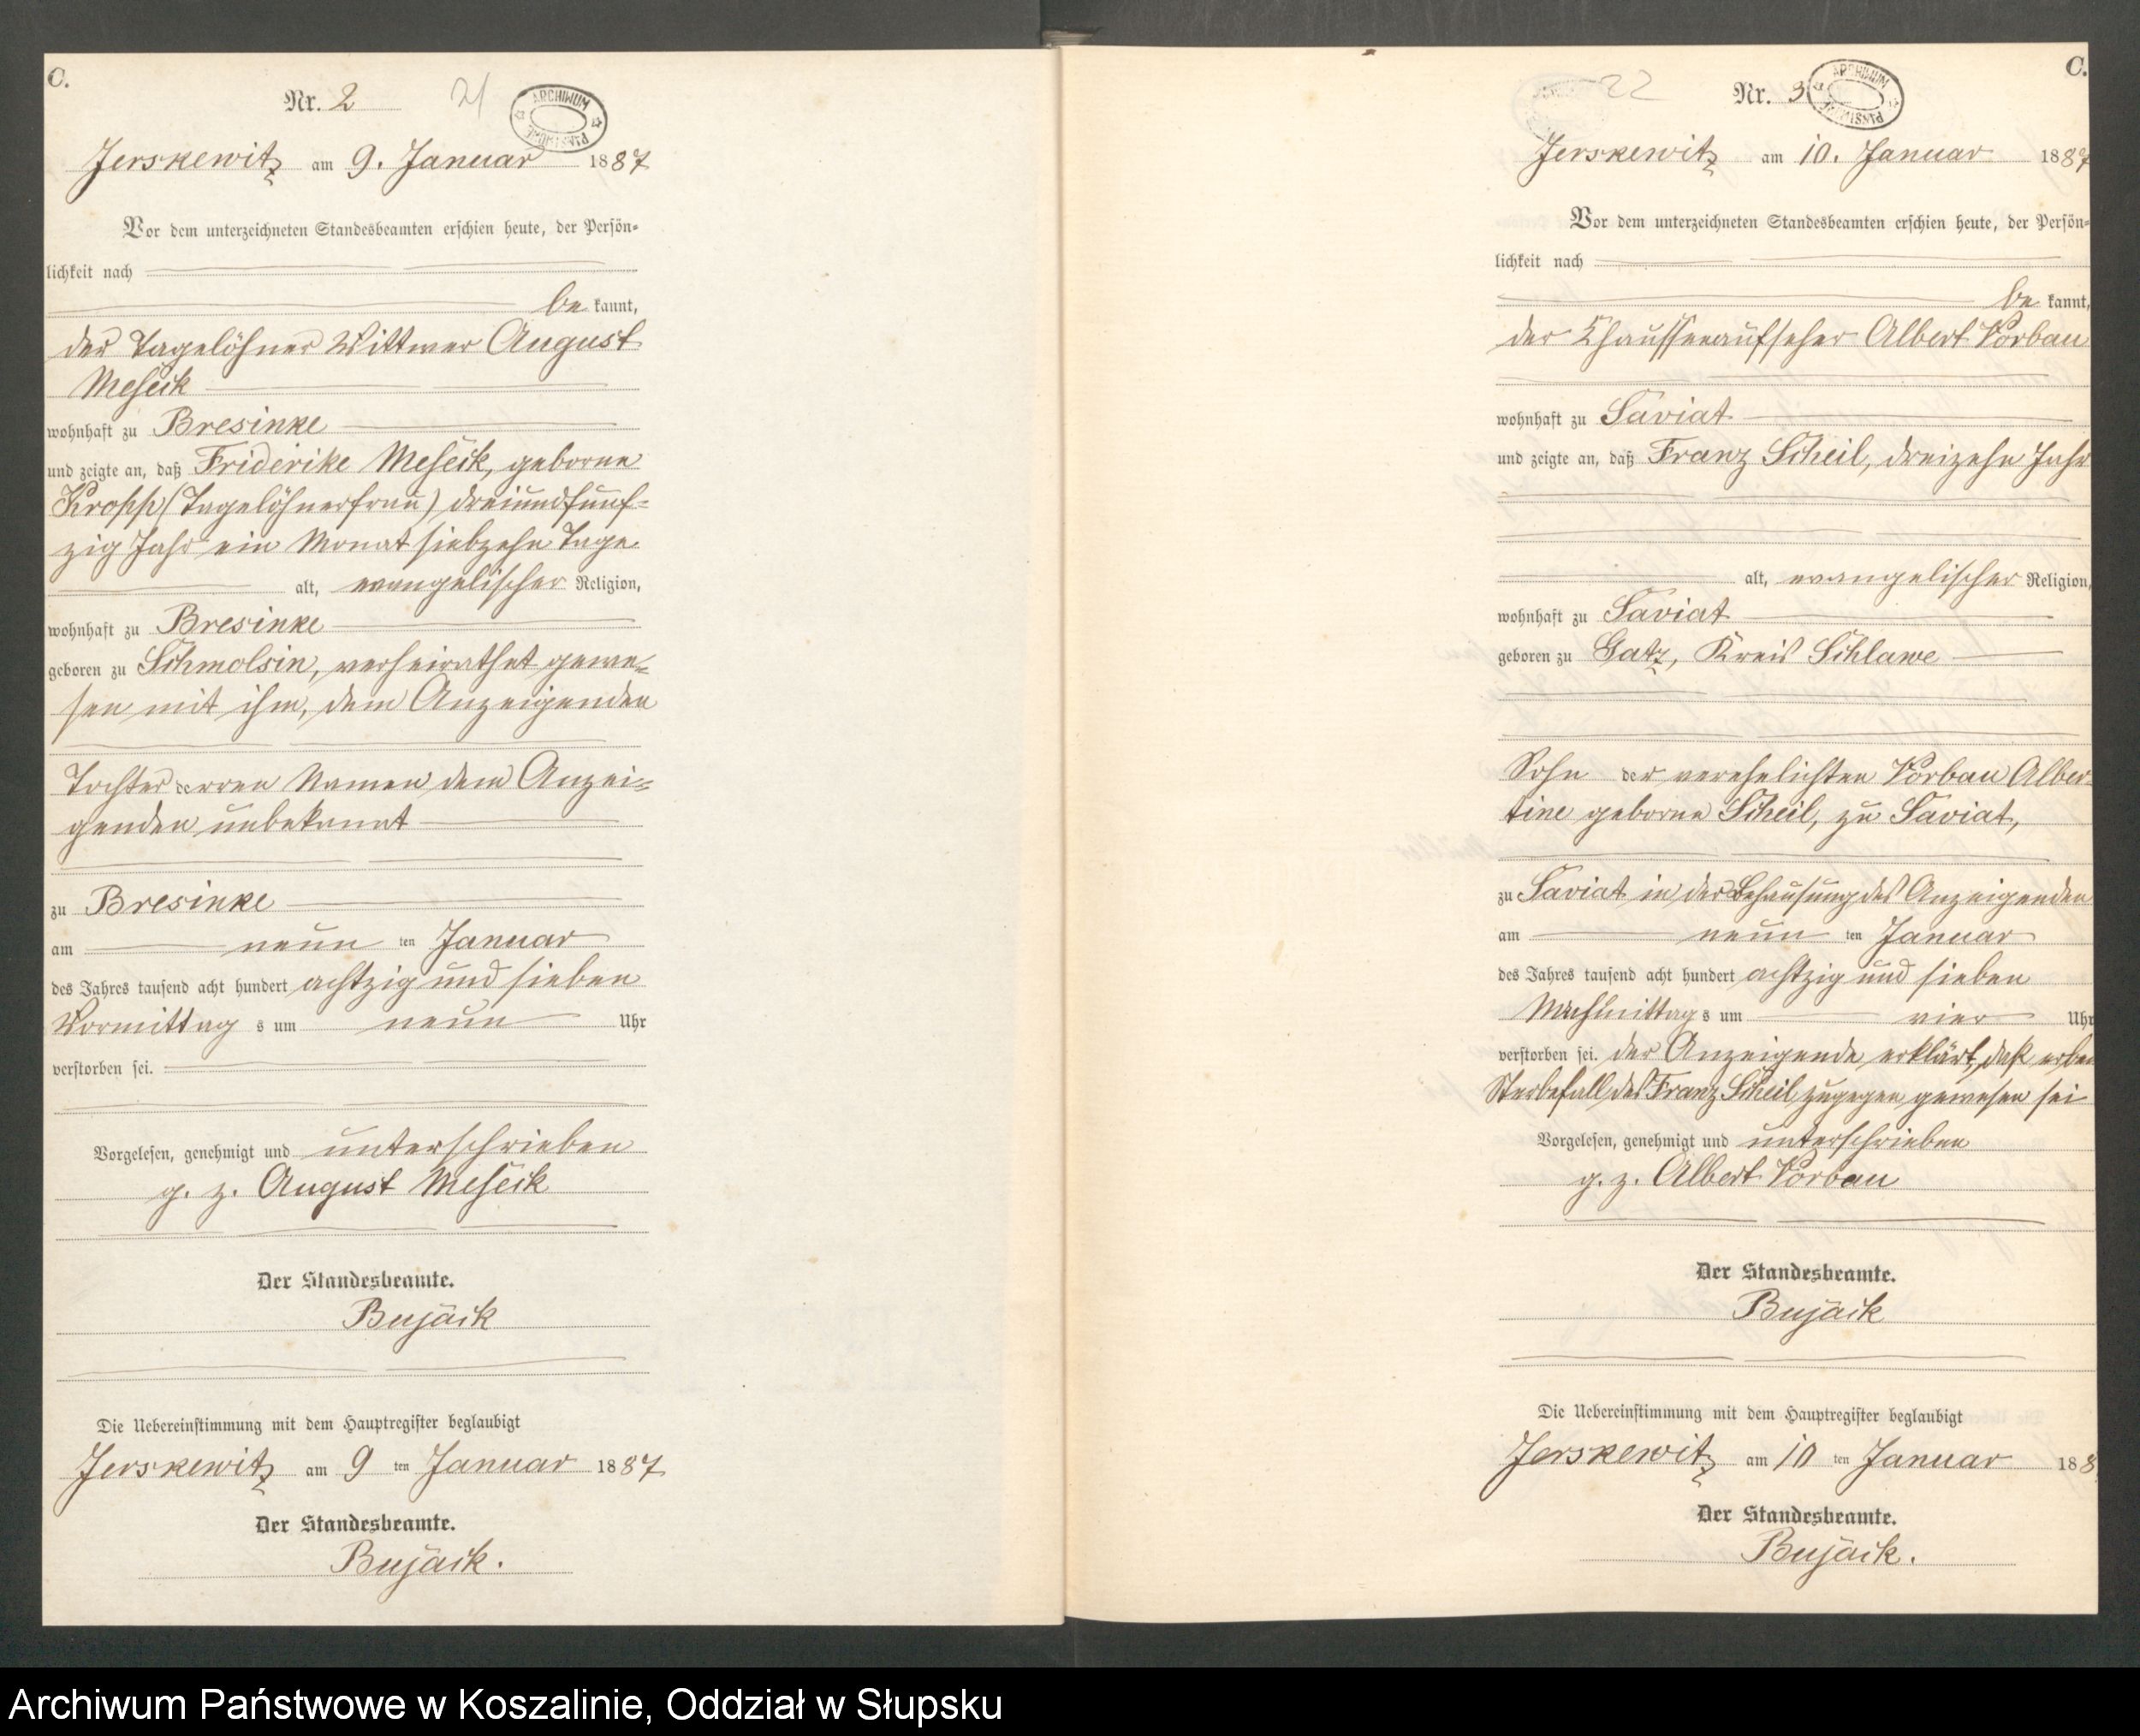 C.
Nr. 2
21
ARCHIWUM
PAŃSTWOWE
Jerskewitz am 9. Januar 1887
Vor dem unterzeichneten Standesbeamten erschien heute, der Persön-
lichkeit nach
be kannt,
der Tagelöhner Wittwer August
Meseck
wohnhaft zu Bresinke
und zeigte an, daß Friderike Meseck, geborne
Kropp (Tagelöhnerfrau) dreiundfünf-
zig Jahr ein Monat siebzehn Tage
alt, evangelischer Religion,
wohnhaft zu Bresinke
geboren zu Schmolsin, verheirathet gewe-
sen mit ihm, dem Anzeigenden
Tochter deren Namen dem Anzei-
genden unbekannt
zu Bresinke
am neun ten Januar
des Jahres tausend acht hundert achtzig und sieben
Vormittag s um neun Uhr
verstorben sei.
Vorgelesen, genehmigt und unterschrieben
g. z. August Meseck
Der Standesbeamte.
Bujack
Die Uebereinstimmung mit dem Hauptregister beglaubigt
Jerskewitz am 9 ten Januar 1887
Der Standesbeamte.
Bujack.
C.
22
Nr. 3
ARCHIWUM
PAŃSTWOWE
Jerskewitz am 10. Januar 1887
Vor dem unterzeichneten Standesbeamten erschien heute, der Persön-
lichkeit nach
be kannt,
der Chausseeaufseher Albert Vorbau
wohnhaft zu Saviat
und zeigte an, daß Franz Scheil, dreizehn Jahr
alt, evangelischer Religion,
wohnhaft zu Saviat
geboren zu Gatz, Kreis Schlawe
Sohn der verehelichten Vorbau Alber-
tine geborne Scheil, zu Saviat,
zu Saviat in der Behausung des Anzeigenden
am neun ten Januar
des Jahres tausend acht hundert achtzig und sieben
Nachmittag s um vier Uhr
verstorben sei. der Anzeigende erklärt, daß er bei
Sterbefall des Franz Scheil zugegen gewesen sei
Vorgelesen, genehmigt und unterschrieben
g. z. Albert Vorbau
Der Standesbeamte.
Bujack
Die Uebereinstimmung mit dem Hauptregister beglaubigt
Jerskewitz am 10 ten Januar 188
Der Standesbeamte.
Bujack.
Archiwum Państwowe w Koszalinie, Oddział w Słupsku